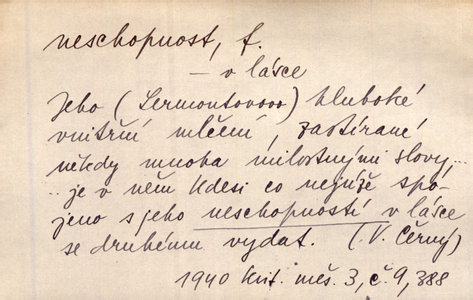 neschopnost, f.
— v lásce
Jeho (Lermontovovo) hluboké
vnitřní mlčení, zastírané
někdy mnoha milostnými slovy...
.. je v něm kdesi co nejúže spo-
jeno s jeho neschopností v lásce
se druhému vydat. (V. Černý)
1940 Krit. měs. 3, č. 9, 388